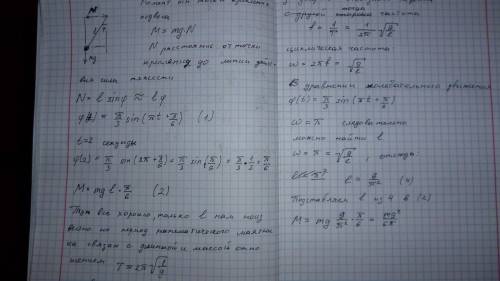 N
l
T
mg
Момент сил точки крепления
подвеса
M = mg·N
N расстояние от точки
крепления до линии дейс
вия силы тяжести
N = l sinφ ≈ lφ
φ(t) = π/3 sin(πt + π/6) (1)
t=2 секунды
φ(2) = π/3 sin(2π + π/6) = π/3 sin(π/6) = π/3 · 1/2 = π/6
M = mg l · π/6 (2)
все хорошо, только l нам неиз
вестно но период математического маятни
ка связан с длинной и массой отно
шением T = 2π√(l/g)
с другой стороны частота
ν = 1/T = 1/2π √(g/l)
циклическая частота
ω = 2πν = √(g/l)
В уравнении колебательного движения
φ(t) = π/3 sin(πt + π/6)
ω = π следовательно
можно найти l
ω = π = √(g/l), отсюда
l = g/π² (4)
Подставляем из 4 в (2)
M = mg g/π² · π/6 = mg²/6π